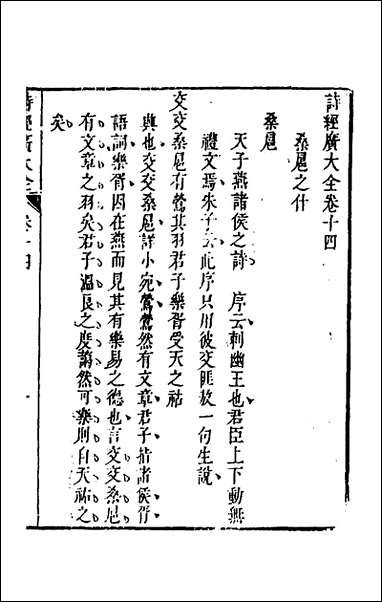 詩經廣大全卷十四
桑扈之什
桑扈
天子燕諸侯之詩 序云刺幽王也君臣上下動無
禮文焉朱子云此序只用彼交匪敖一句生說
交交桑扈有鶯其羽君子樂胥受天之祜
興也交交桑扈詳小宛鶯鶯然有文章君子指諸侯胥
語詞樂胥因在燕而見其有樂易之德也言交交桑扈
有文章之羽矣君子溫良之度藹然可樂則自天祐之
矣
詩經廣大全 卷十四